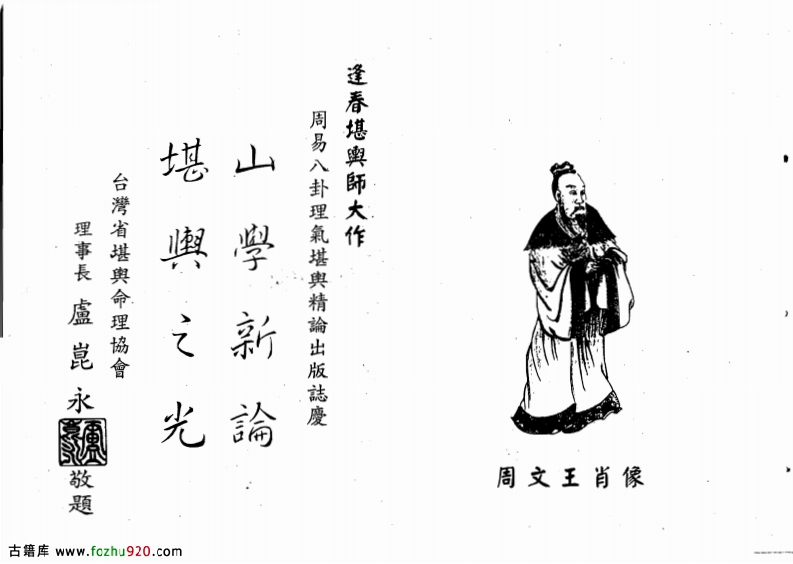 周文王肖像
逢春堪輿師大作
周易八卦理氣堪輿精論出版誌慶
山學新論
堪輿之光
台灣省堪輿命理協會
理事長 盧崑永 敬題
古籍库 www.fozhu920.com